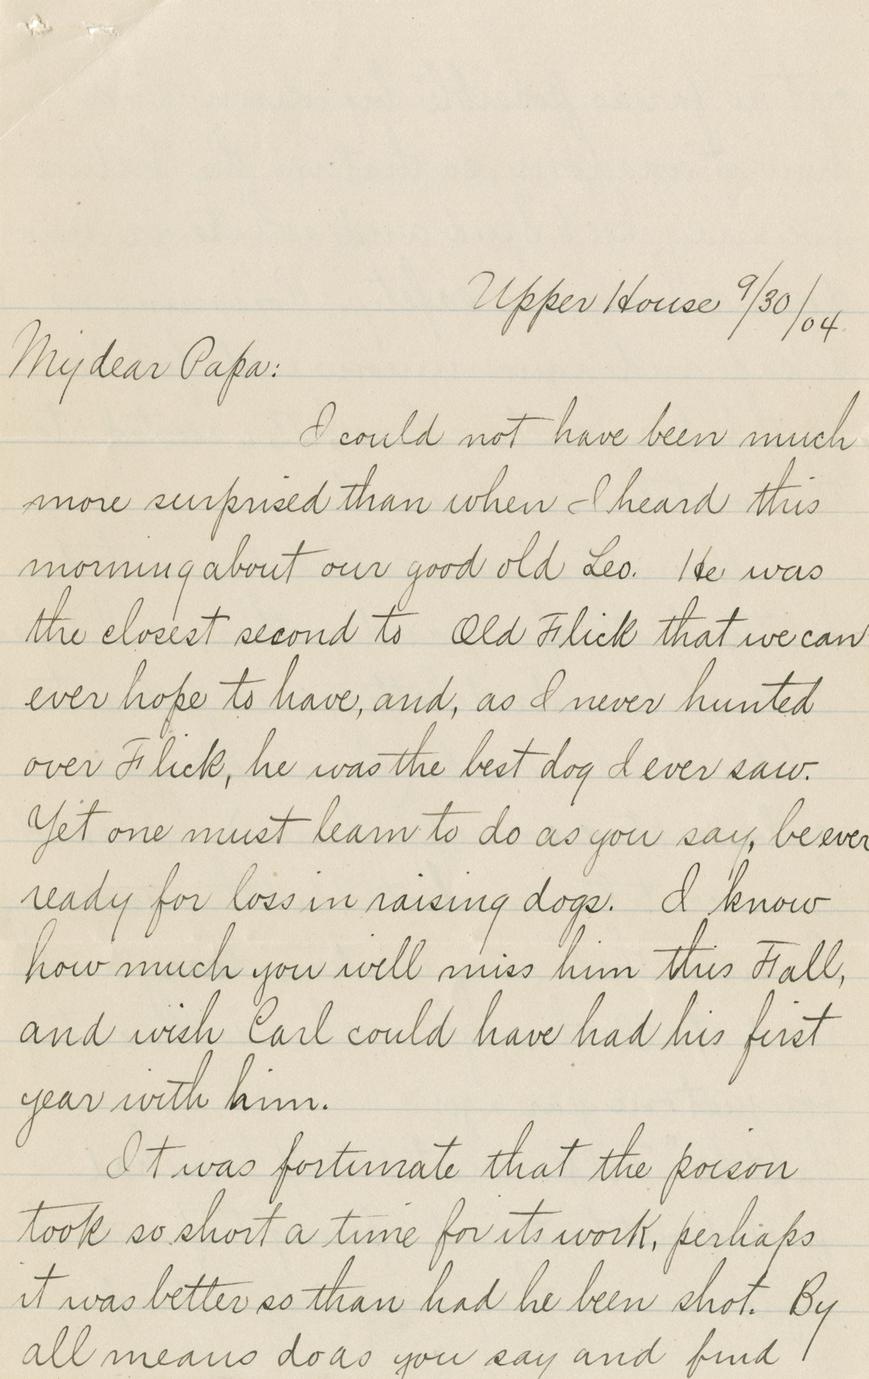 Upper House 9/30/04
My dear Papa:
I could not have been much
more surprised than when I heard this
morning about our good old Leo. He was
the closest second to Old Flick that we can
ever hope to have, and, as I never hunted
over Flick, he was the best dog I ever saw.
Yet one must learn to do as you say, be ever
ready for loss in raising dogs. I know
how much you will miss him this Fall,
and wish Carl could have had his first
year with him.
It was fortunate that the poison
took so short a time for its work, perhaps
it was better so than had he been shot. By
all means do as you say and find